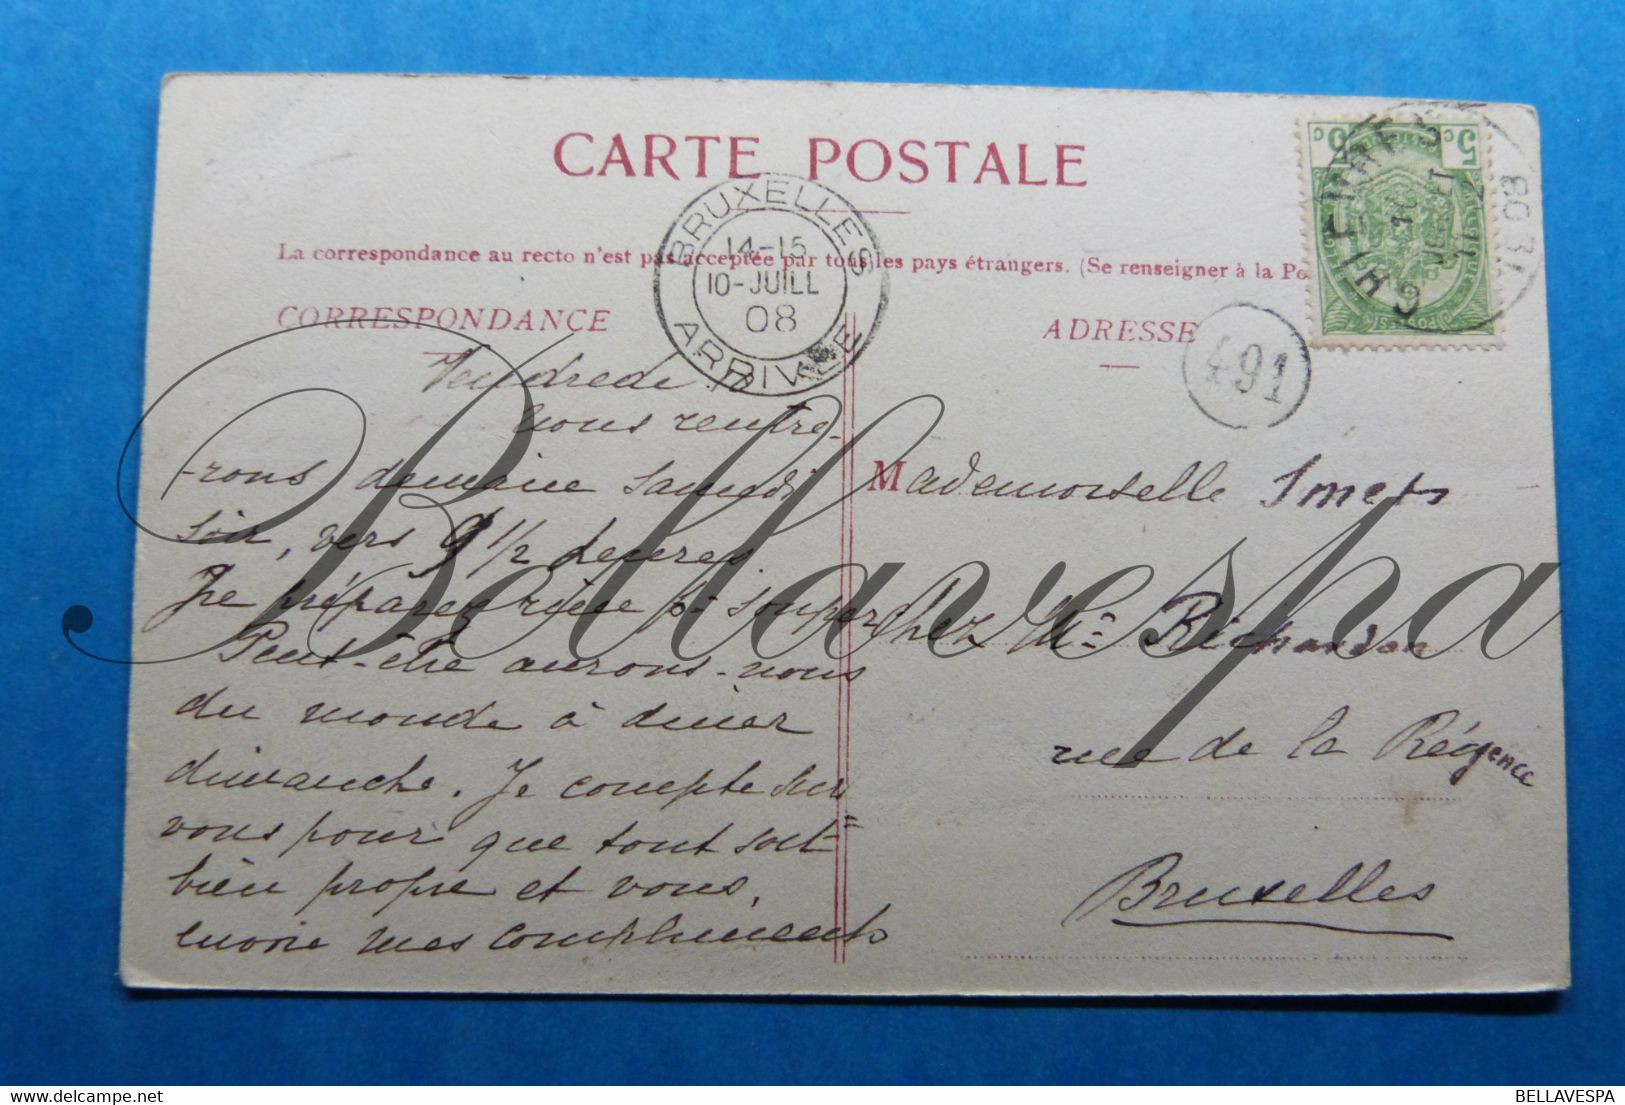 CARTE POSTALE
La correspondance au recto n'est pas acceptée par tous les pays étrangers. (Se renseigner à la Po
CORRESPONDANCE
ADRESSE
BRUXELLES
14-15
10-JUILL
08
ARRIVEE
CHIEVRES
10
JUIL
11
08
5c 5c
491
Vendredi.
Nous rentre-
-rons demain samedi
soir, vers 9 1/2 heures.
Ne préparez rien pr souper
Peut-être aurons-nous
du monde à diner
dimanche. Je compte sur
vous pour que tout soit
bien propre et vous
envoie mes compliments
Mademoiselle Smets
chez Mr Richardon
rue de la Régence
Bruxelles
Bellavespa
BELLAVESPA